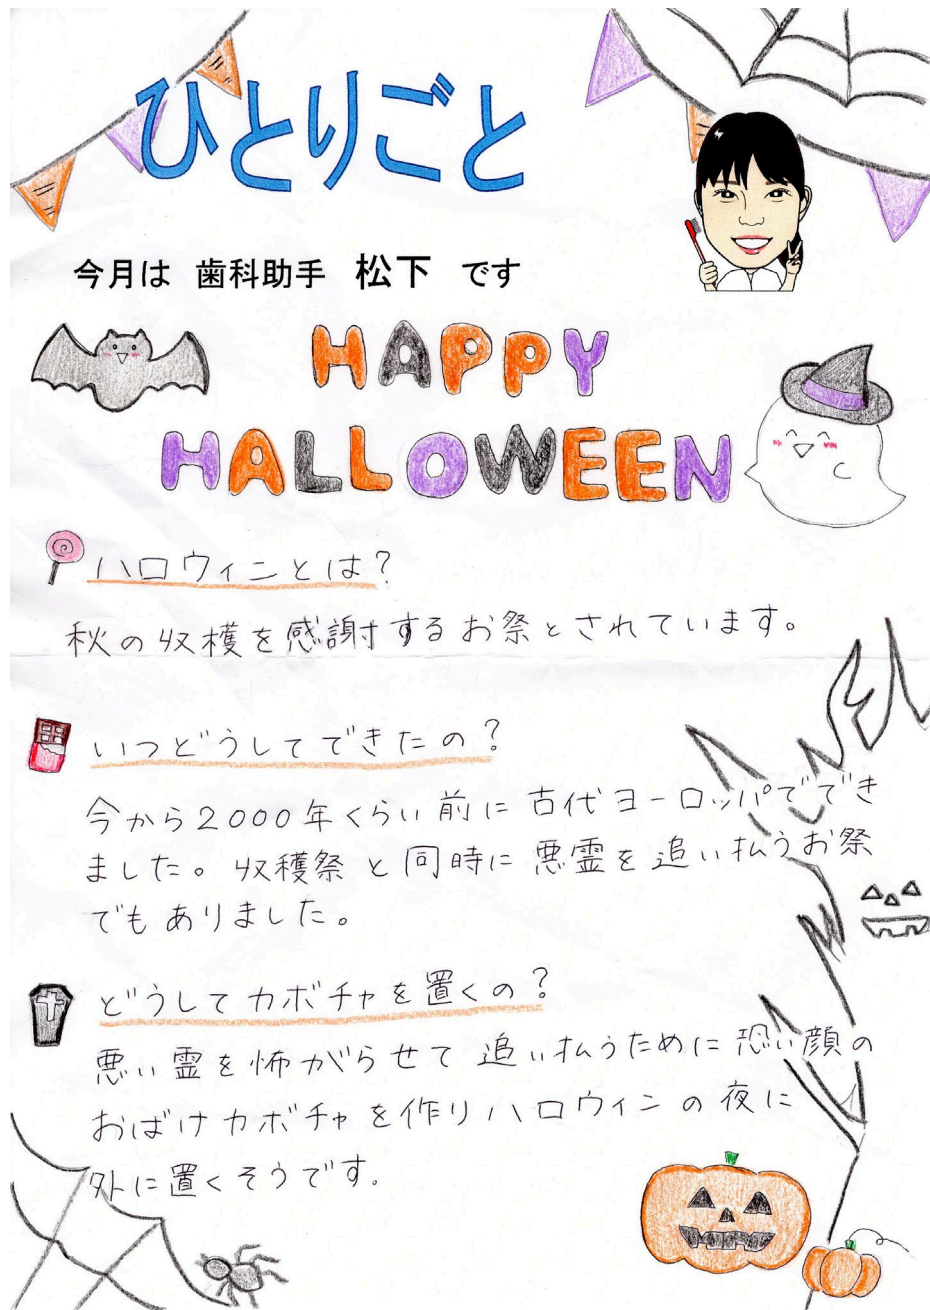 ひとりごと
今月は 歯科助手 松下 です
HAPPY
HALLOWEEN
ハロウィンとは?
秋の収穫を感謝するお祭とされています。
いつどうしてできたの?
今から2000年くらい前に古代ヨーロッパででき
ました。収穫祭と同時に悪霊を追い払うお祭
でもありました。
どうしてカボチャを置くの?
悪い霊を怖がらせて追い払うために恐い顔の
おばけカボチャを作りハロウィンの夜に
外に置くそうです。